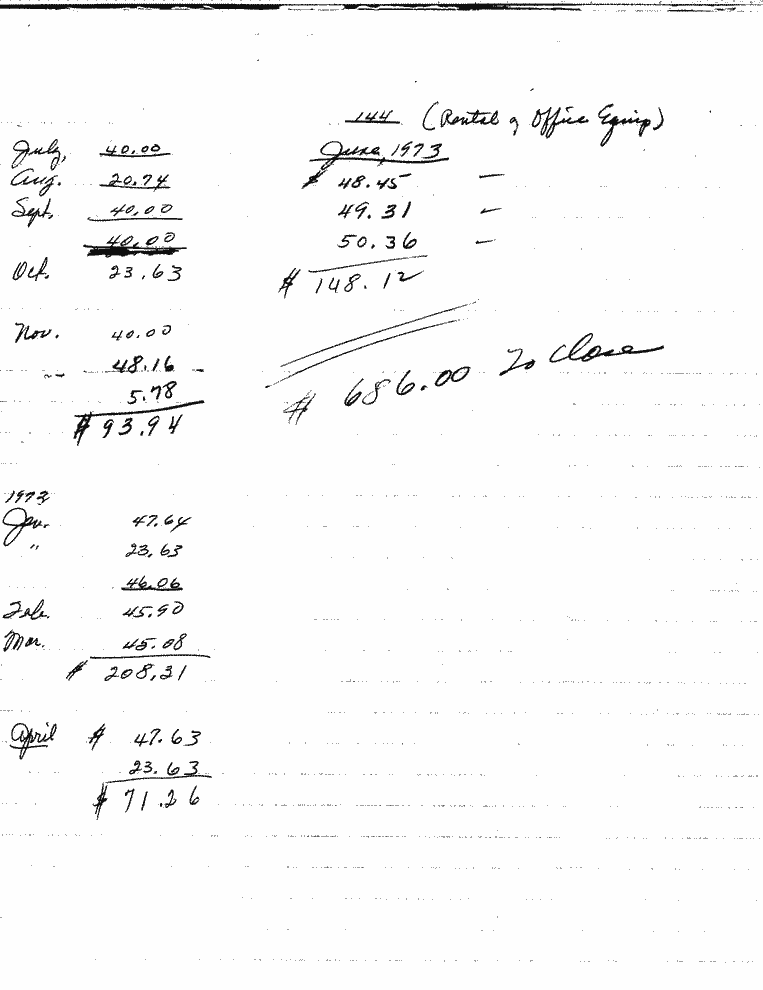 144 (Rental of Office Equip)
July, 40.00
Aug. 20.74
Sept. 40.00
40.00
Oct. 23.63
Nov. 40.00
48.16
5.78
$ 93.94
1973
Jan. 47.64
" 23.63
46.06
Feb. 45.90
Mar. 45.08
$ 208.31
April $ 47.63
23.63
$ 71.26
June, 1973
$ 48.45 —
49.31 —
50.36 —
$ 148.12
$ 686.00 To Close